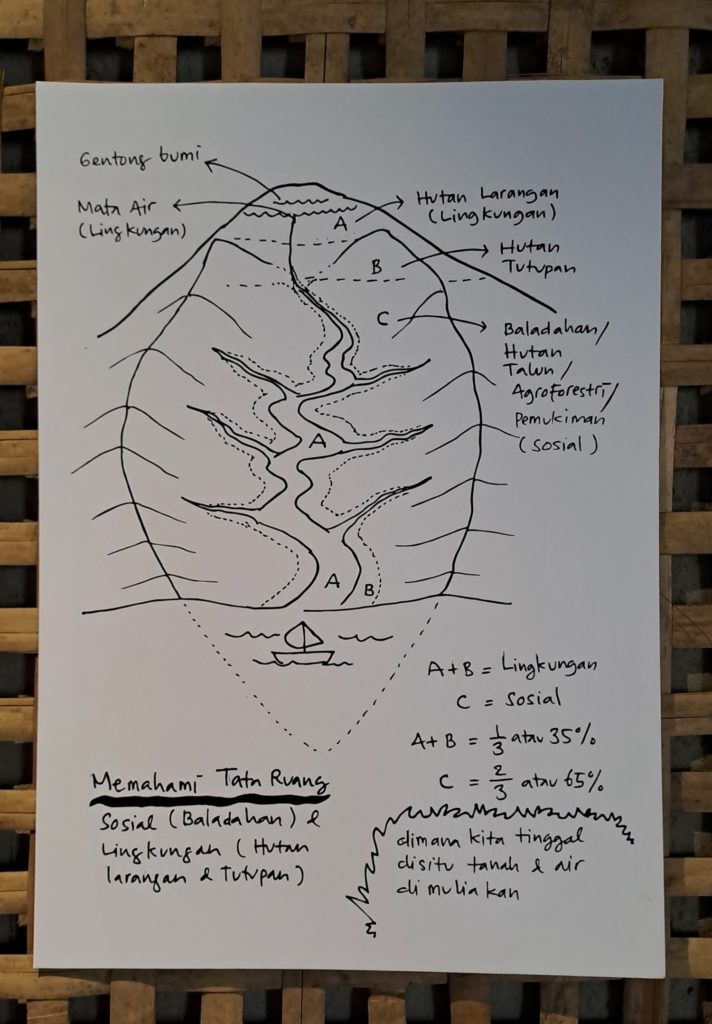 Gentong bumi
Mata Air
(Lingkungan)
A
Hutan Larangan
(Lingkungan)
B
Hutan
Tutupan
C
Baladahan/
Hutan
Talun/
Agroforestri/
Pemukiman
(Sosial)
A
A
B
A+B = Lingkungan
C = Sosial
A+B = 1/3 atau 35%
C = 2/3 atau 65%
Memahami Tata Ruang
Sosial (Baladahan) &
Lingkungan (Hutan
larangan & Tutupan)
dimana kita tinggal
disitu tanah & air
di muliakan